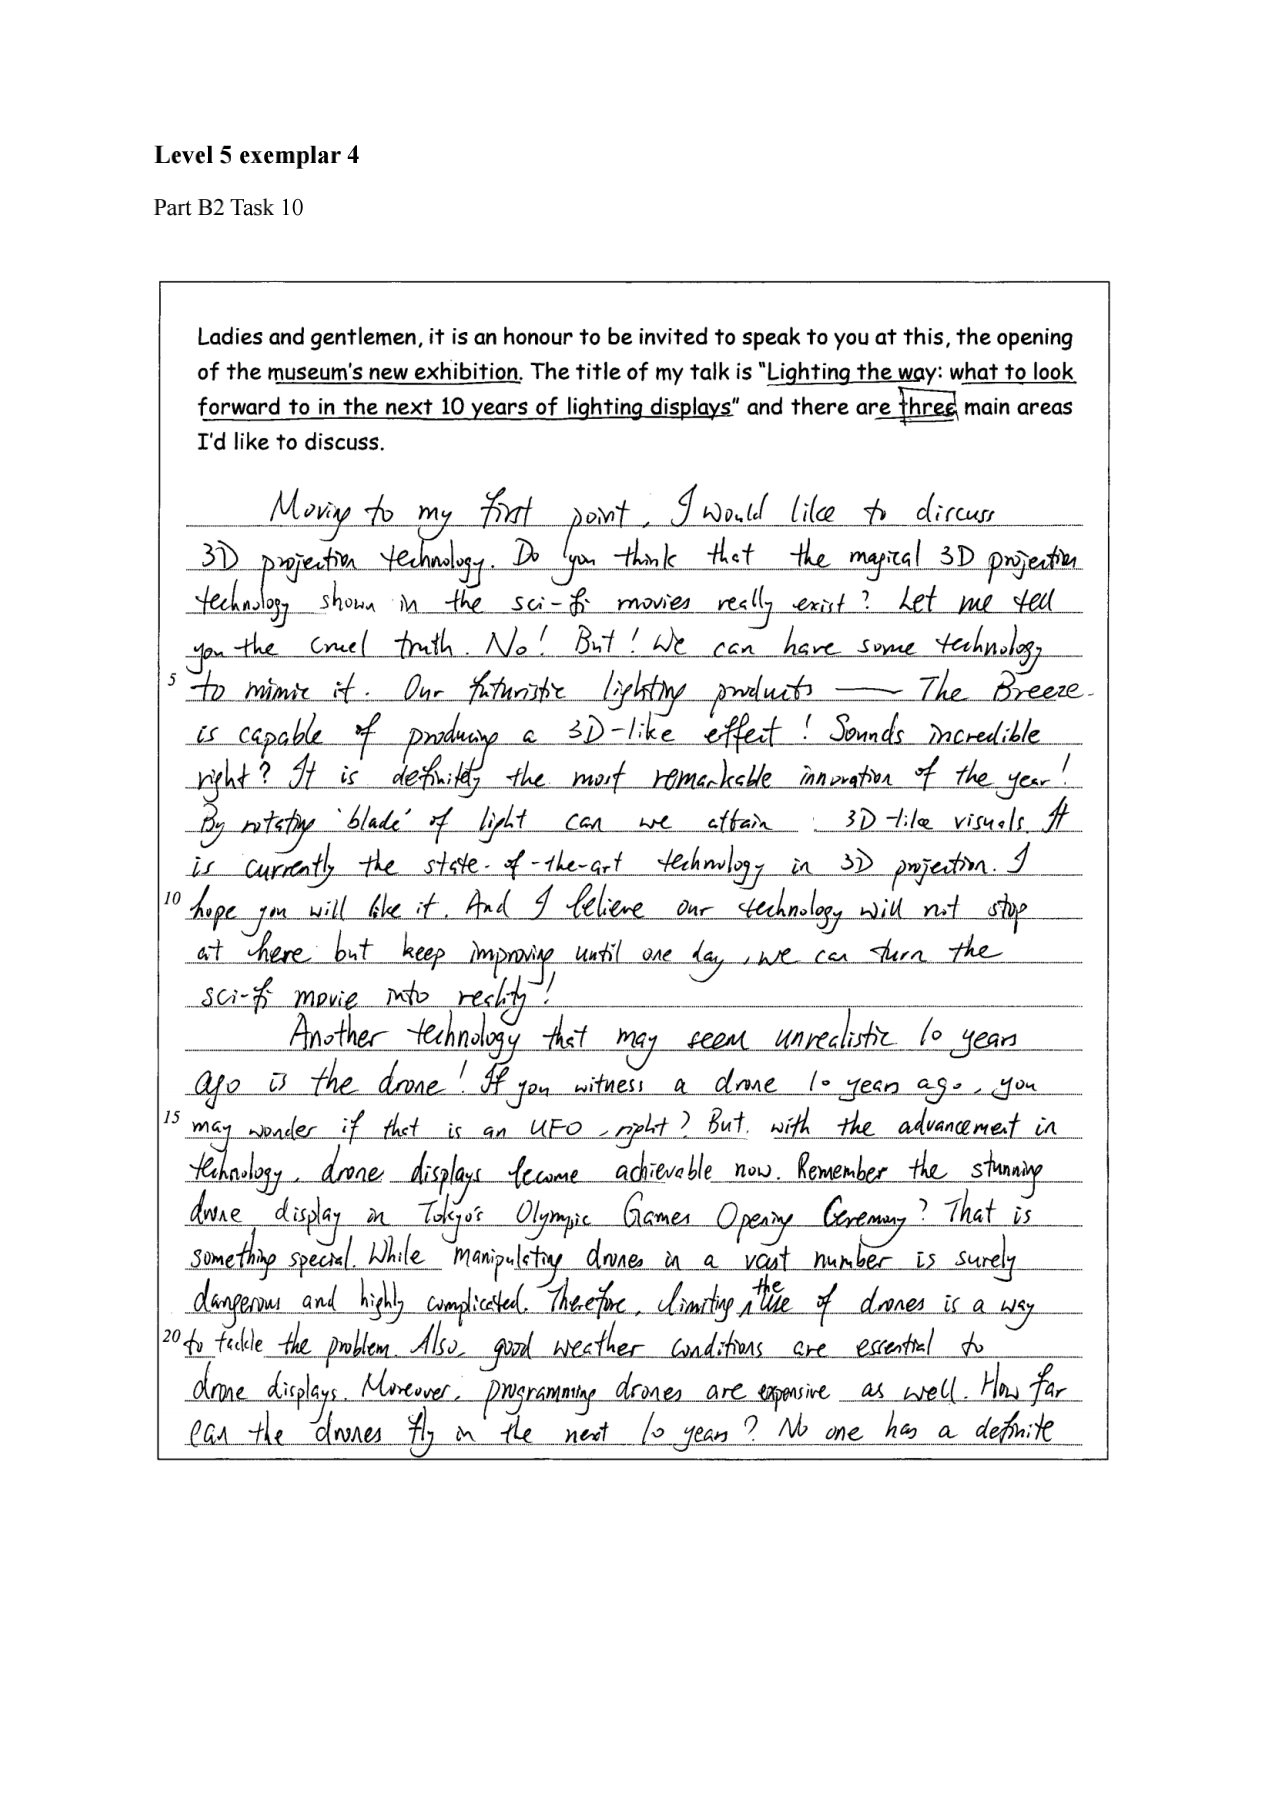 Level 5 exemplar 4
Part B2 Task 10
Ladies and gentlemen, it is an honour to be invited to speak to you at this, the opening
of the museum's new exhibition. The title of my talk is "Lighting the way: what to look
forward to in the next 10 years of lighting displays" and there are three main areas
I'd like to discuss.
Moving to my first point, I would like to discuss
3D projection technology. Do you think that the magical 3D projection
technology shown in the sci-fi movies really exist? Let me tell
you the cruel truth. No! But! We can have some technology
5 to mimic it. Our futuristic lighting products —— The Breeze
is capable of producing a 3D-like effect! Sounds incredible
right? It is definitely the most remarkable innovation of the year!
By rotating 'blade' of light can we attain 3D-like visuals. It
is currently the state-of-the-art technology in 3D projection. I
10 hope you will like it. And I believe our technology will not stop
at here but keep improving until one day, we can turn the
sci-fi movie into reality!
Another technology that may seem unrealistic 10 years
ago is the drone! If you witness a drone 10 years ago, you
15 may wonder if that is an UFO, right? But, with the advancement in
technology, drone displays become achievable now. Remember the stunning
drone display in Tokyo's Olympic Games Opening Ceremony? That is
something special. While manipulating drones in a vast number is surely
dangerous and highly complicated. Therefore, limiting the use of drones is a way
20 to tackle the problem. Also, good weather conditions are essential to
drone displays. Moreover, programming drones are expensive as well. How far
can the drones fly in the next 10 years? No one has a definite